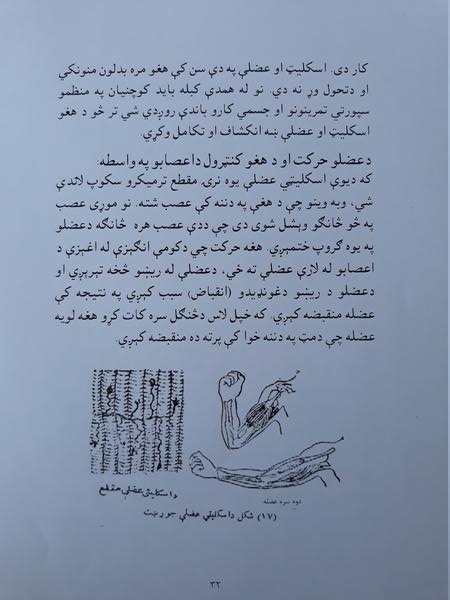 کار دی. اسکلیټ او عضلې په دې سن کې هغو مره بدلون منونکي
او دتحول وړ نه دي. نو له همدې کبله باید کوچنیان په منظمو
سپورتي تمرینونو او جسمي کارو باندې روږدي شي تر څو د هغو
اسکلیټ او عضلې ښه انکشاف او تکامل وکړي.
دعضلو حرکت او د هغو کنټرول داعصابو په واسطه:
که دیوې اسکلیټي عضلې یوه نرۍ مقطع ترمیکرو سکوپ لاندې
شي، وبه وینو چې د هغې په دننه کې عصب شته. نو موړی عصب
په څو څانگو وېشل شوی دی چې ددې عصب هره څانگه دعضلو
په یوه گروپ ختمېږي. هغه حرکت چې دکومې انگېزې له اغېزې د
اعصابو له لارې عضلې ته ځي، دعضلې له رېښو څخه تېرېږي او
دعضلو د رېښو دغونډېدو (انقباض) سبب کېږي په نتیجه کې
عضله منقبضه کېږي. که خپل لاس دڅنگل سره کات کړو هغه لویه
عضله چې دمټ په دننه خوا کې پرته ده منقبضه کېږي.
داسکلیټي عضلې مقطع
دوه سره عضله
(۱۷) شکل داسکلیټي عضلې جوړښت
۳۲